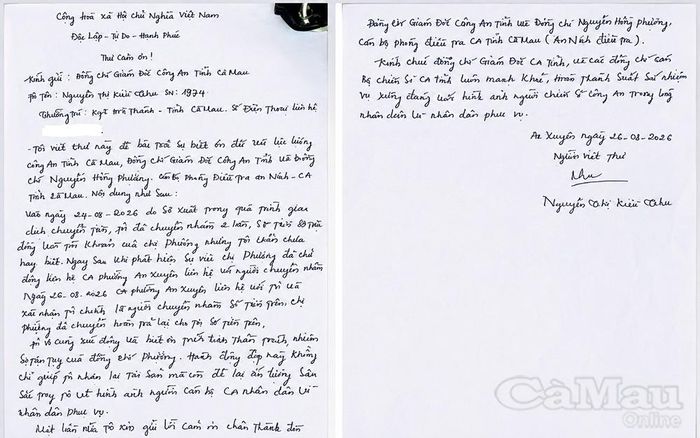 Cộng Hoà Xã Hội Chủ Nghĩa Việt Nam
Độc Lập - Tự Do - Hạnh Phúc
Thư Cảm ơn!
Kính gửi: Đồng Chí Giám Đốc Công An Tỉnh Cà Mau
Tôi Tên: Nguyễn Thị Kiều Thu SN: 1974
Thường trú: Hoà Thành - Tỉnh Cà Mau. Số Điện Thoại liên hệ
- Tôi viết thư này để bài tỏ Sự biết ơn đối với lực lượng
Công An Tỉnh Cà Mau, Đồng Chí Giám Đốc Công An Tỉnh và Đồng
Chí Nguyễn Hồng Phượng. Cán Bộ Phòng Điều Tra an Ninh - CA
Tỉnh Cà Mau. Nội dung như Sau:
Vào ngày 24-08-2026 do Sơ xuất trong quá trình giao
dịch chuyển tiền, tôi đã chuyển nhầm 2 lần, Số Tiền
đồng vào Tài Khoản của chị Phượng nhưng tôi vẫn chưa
hay biết. Ngay Sau khi phát hiện Sự việc chị Phượng đã chủ
động liên hệ CA phường An Xuyên liên hệ với người chuyển nhầm
Ngày 26-08-2026 CA phường An Xuyên liên hệ với tôi và
xác nhận tôi chính là người chuyển nhầm Số Tiền trên. Chị
Phượng đã chuyển hoàn trả lại cho tôi Số Tiền trên,
Tôi vô cùng xúc động và biết ơn trước tinh Thần trách nhiệm
Sự tận tụy của đồng chí Phượng. Hành động đẹp này không
chỉ giúp tôi nhận lại Tài Sản mà còn để lại ấn tượng Sâu
Sắc trong tôi về hình ảnh người Cán bộ CA nhân dân vì
nhân dân phục vụ.
Một lần nữa tôi xin gửi lời Cảm ơn chân Thành đến
Đồng Chí Giám Đốc Công An Tỉnh và Đồng Chí Nguyễn Hồng Phượng,
Cán bộ phòng điều tra CA Tỉnh Cà Mau (An Ninh điều tra).
Kính chúc đồng Chí Giám Đốc CA Tỉnh, và các đồng chí Cán
Bộ Chiến Sĩ CA tỉnh luôn mạnh Khoẻ, Hoàn Thành Xuất Sắc nhiệm
vụ xứng đáng với hình ảnh người chiến Sĩ Công An Trong lòng
nhân dân Vì nhân dân phục vụ.
An Xuyên ngày 26-08-2026
Người viết Thư
Thu
Nguyễn Thị Kiều Thu
CàMau
Online